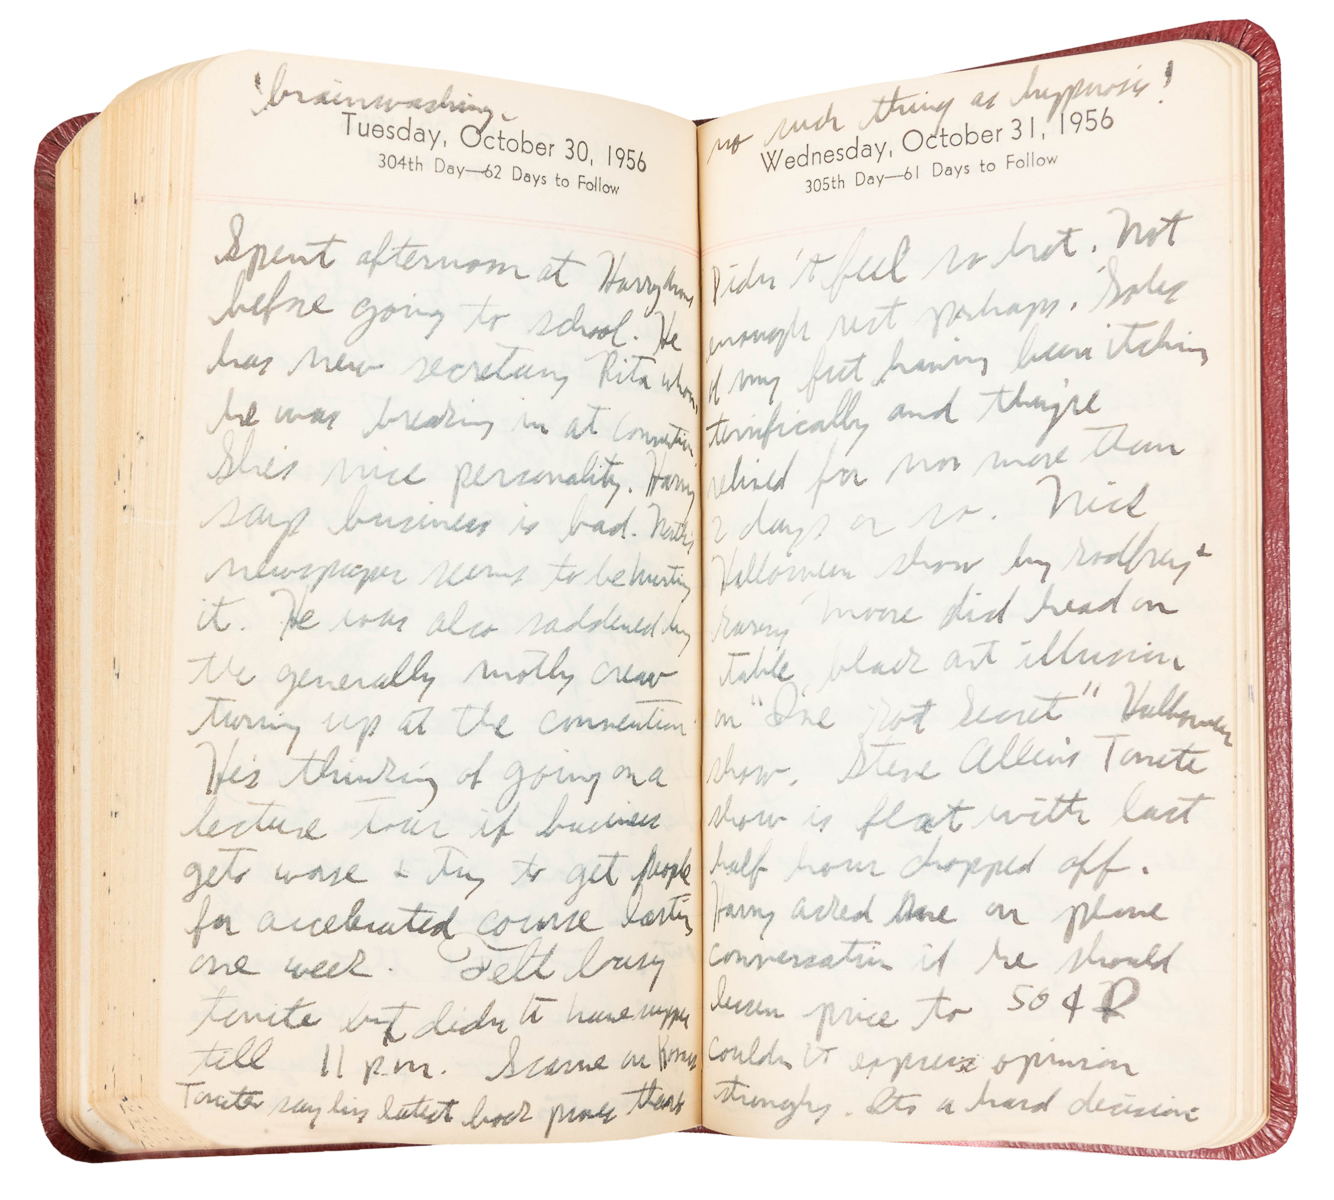 'brainwashing.
Tuesday, October 30, 1956
304th Day—62 Days to Follow
Spent afternoon at Harry
before going to school. He
has new secretary Rita whom
he was breaking in at convention.
She's nice personality. Harry
says business is bad.
newspaper seems to be hurting
it. He was also saddened by
the generally motly crew
turning up at the convention
He's thinking of going on a
lecture tour if business
gets worse & try to get people
for accelerated course lasting
one week. Felt lousy
tonite but didn't have supper
till 11 p.m. Scarne on
Tonite say his latest book proves there's
no such thing as hypnosis!
Wednesday, October 31, 1956
305th Day—61 Days to Follow
Didn't feel so hot. Not
enough rest perhaps. Soles
of my feet having been itching
terrifically and they're
relined for now more than
2 days or so. Nice
Halloween show by Godfrey &
Garry Moore did head on
table black art illusion
on "I've Got Secret" Halloween
show. Steve Allen's Tonite
show is flat with last
half hour chopped off.
Harry asked me on phone
conversation if he should
lessen price to 50¢ I
couldn't express opinion
strongly. Its a hard decision